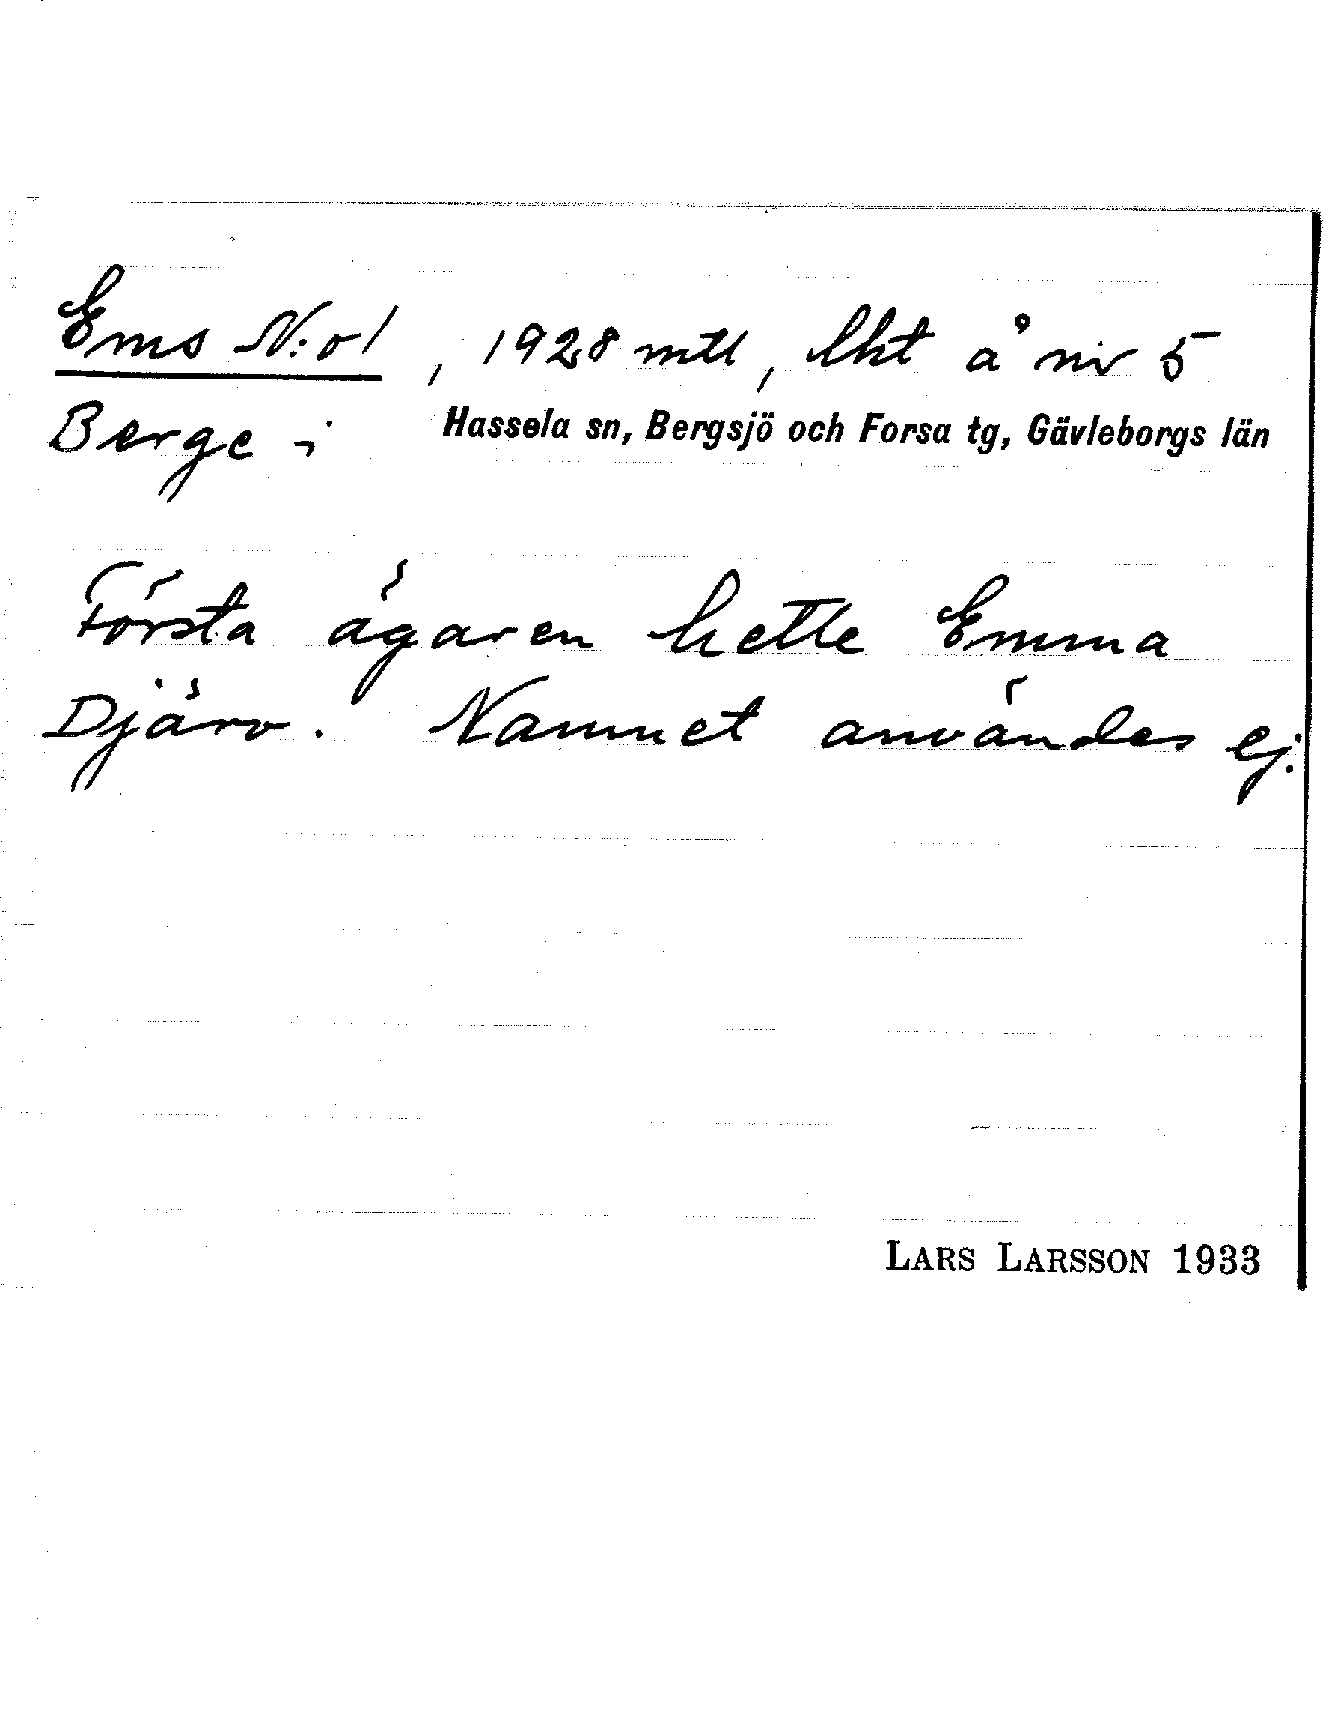 Ems N:o 1, 1928 mtl, lht å nr 5
Berge i Hassela sn, Bergsjö och Forsa tg, Gävleborgs län
Första ägaren hette Emma
Djärv. Namnet användes ej.
LARS LARSSON 1933